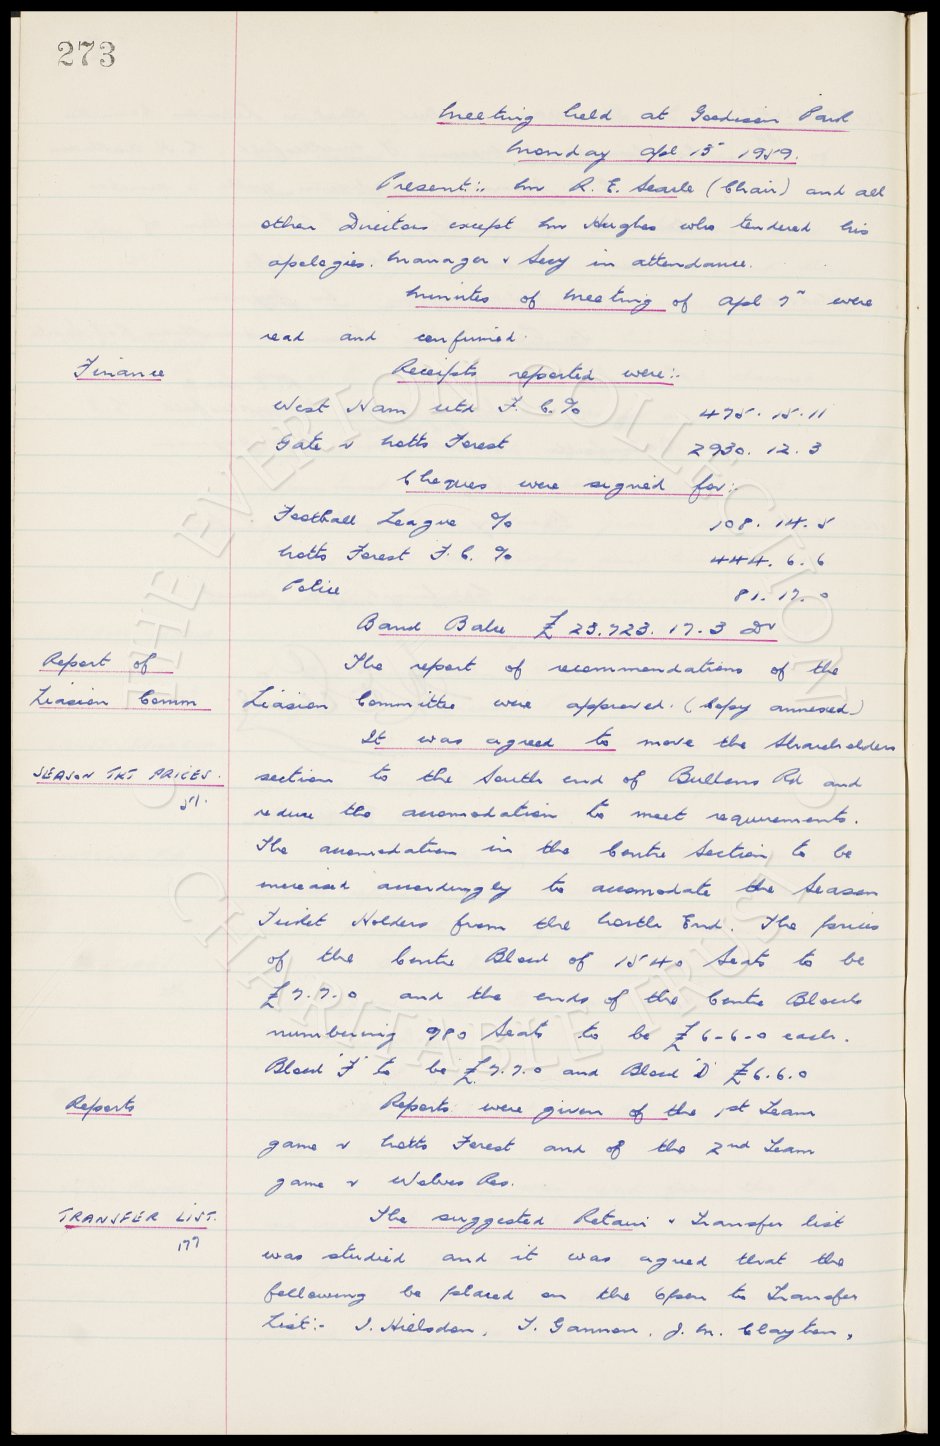 273
Meeting held at Goodison Park
Monday Apl 13 1959.
Present:- Mr R. E. Searle (Chair) and all
other Directors except Mr Hughes who tendered his
apologies. Manager & Secy in attendance.
Minutes of Meeting of Apl 7th were
read and confirmed.
Finance
Receipts reported were:-
West Ham Utd F. C. % 475. 15. 11
Gate v Notts Forest 2930. 12. 3
Cheques were signed for:-
Football League % 108. 14. 5
Notts Forest F. C. % 444. 6. 6
Police 81. 17. 0
Bank Balce £ 23.723. 17. 3 Dr
Report of
Liasion Comm
The report of recommendations of the
Liasion Committee were approved. (Copy annexed)
It was agreed to move the Shareholders
SEASON TKT PRICES.
51.
section to the South end of Bullens Rd and
reduce the accomodation to meet requirements.
The accomodation in the Centre Section to be
increased accordingly to accomodate the Season
Ticket Holders from the North End. The prices
of the Centre Block of 1540 Seats to be
£7.7.0 and the ends of the Centre Blocks
numbering 980 Seats to be £6-6-0 each.
Block 'F' to be £7.7.0 and Block 'D' £6.6.0
Reports
Reports were given of the 1st Team
game v Notts Forest and of the 2nd Team
game v Wolves Res.
TRANSFER LIST.
177
The suggested Retain & Transfer list
was studied and it was agreed that the
following be placed on the Open to Transfer
List:- J. Hillsdon, T. Gannon, J. M. Clayton,
THE EVERTON COLLECTION
CHARITABLE TRUST